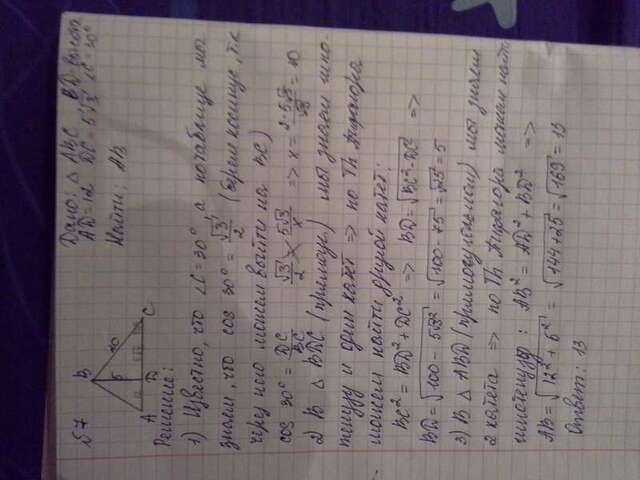 №7
B
10
5
A D C
Дано: △ ABC BD высота
AD = 12 DC = 5√3 ∠C = 30°
Найти: AB
Решение:
1) Известно, что ∠C = 30° а по таблице мы
знаем, что cos 30° = √3/2 (берем косинус, т.к
через него можем выйти на BC)
cos 30° = DC/BC √3/2 = 5√3/x => x = 2·5√3/√3 = 10
2) В △ BDC (прямоуг.) мы знаем гипо-
тенузу и один катет => по Th Пифагора
можем найти другой катет:
BC² = BD² + DC² => BD = √BC² - DC² =>
BD = √100 - 5√3² = √100 - 75 = √25 = 5
3) В △ ABD (прямоугольном) мы знаем
2 катета => по Th Пифагора можем найти
гипотенузу: AB² = AD² + BD² =>
AB = √12² + 5² = √144 + 25 = √169 = 13
Ответ: 13